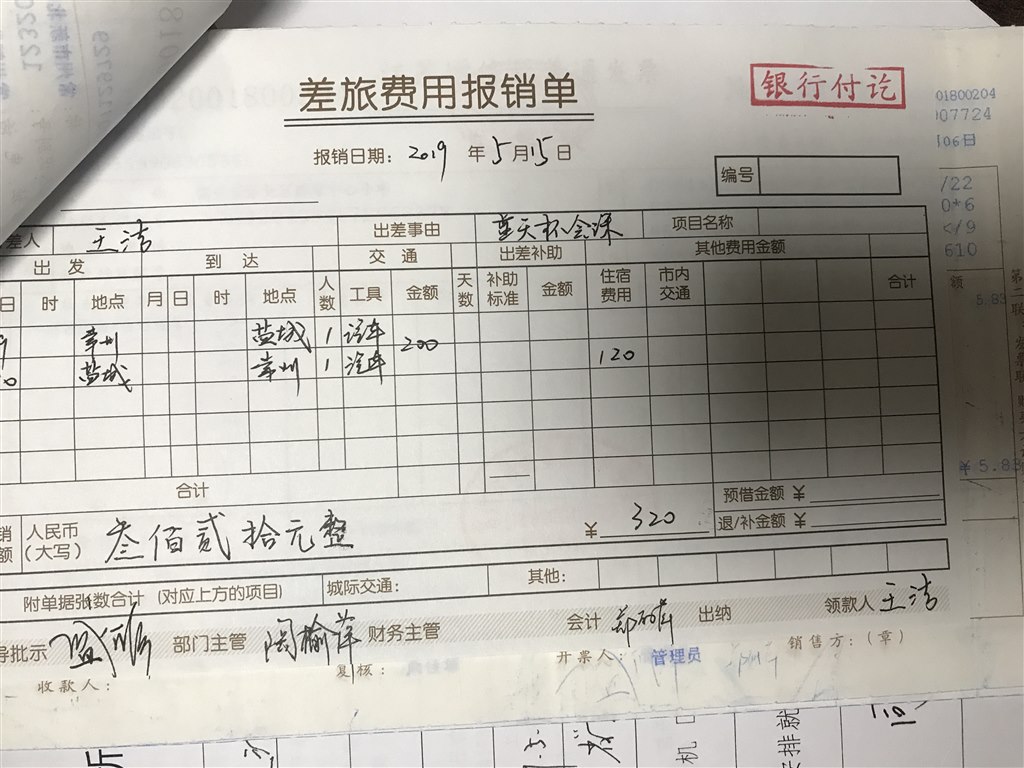 差旅费用报销单
银行付讫
01800204
07724
06日
报销日期: 2019 年 5 月 15 日
编号
/22
0*6
</9
610
差人 王洁 出差事由 蓝天杯会课 项目名称
出发 到达 交通 出差补助 其他费用金额
日 时 地点 月 日 时 地点 人数 工具 金额 天数 补助标准 金额 住宿费用 市内交通 合计
9 常州 盐城 1 汽车 200
10 盐城 常州 1 汽车 120
合计 预借金额 ¥
人民币(大写) 叁佰贰拾元整 ¥ 320 退/补金额 ¥
附单据张数合计 (对应上方的项目) 城际交通: 其他:
导批示 部门主管 陶榆萍 财务主管 会计 出纳 领款人 王洁
收款人: 复核: 开票人: 管理员 销售方:(章)
¥ 5.83